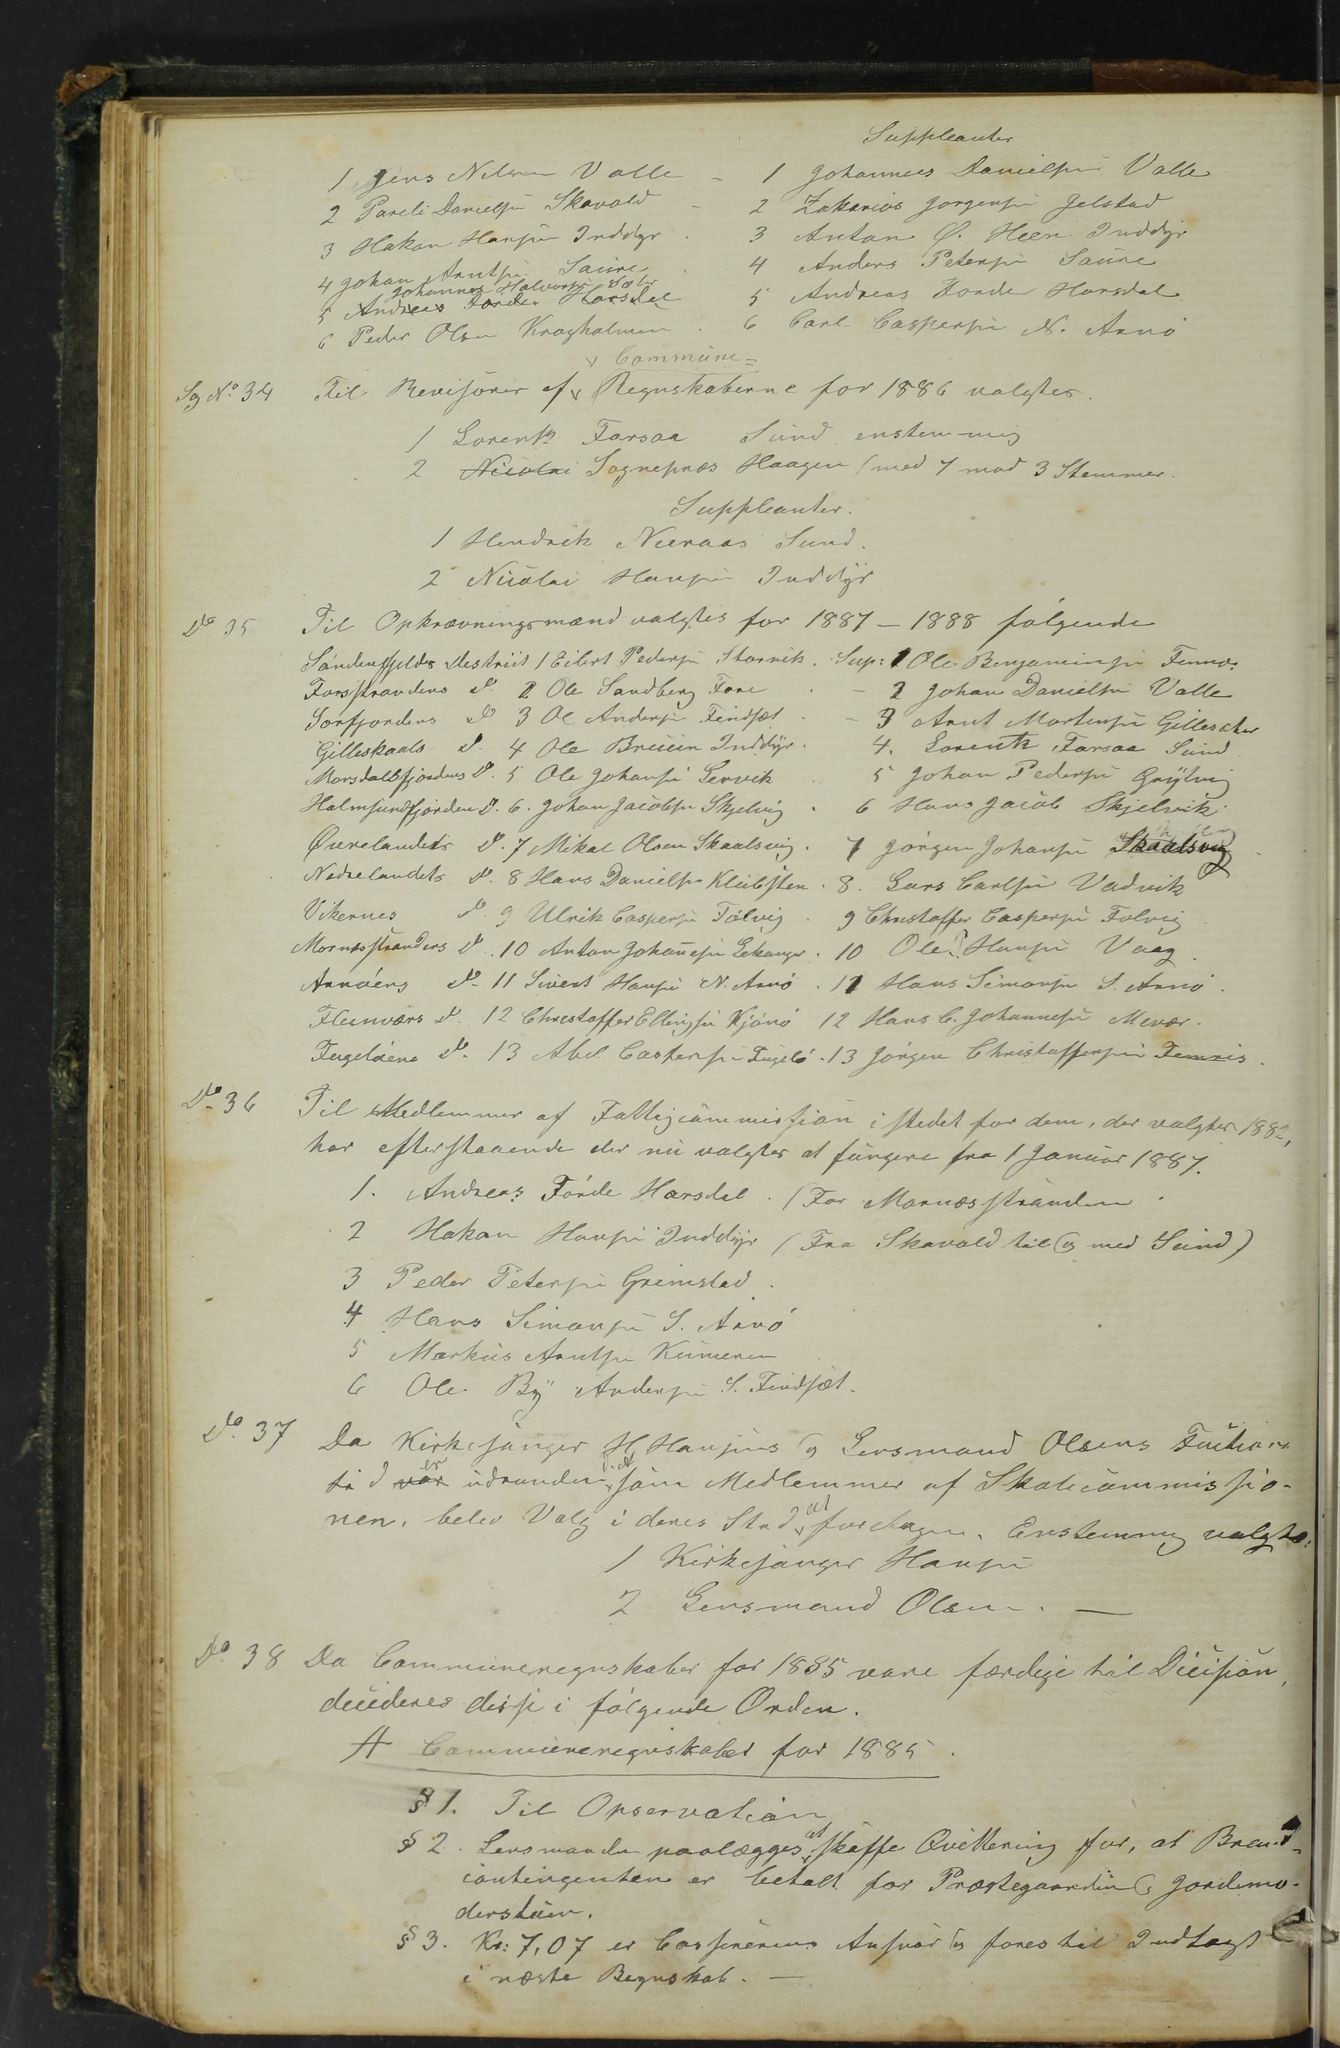 Suppleanter
1 Jens Nilsen Valle - 1 Johannes Danielsen Valle
2 Pareli Danielsen Skavold - 2 Zakarias Jørgensen Jelstad
3 Hakon Hansen Inddyr . 3 Anton Ø. Heen Inddyr
4 Johan Arntsen Saure . 4 Anders Petersen Saure
Johannes Halvorsen Sæbr
5 Andreas Førde Horsdal 5 Andreas Førde Horsdal
6 Peder Olsen Kragholmen . 6 Carl Caspersen N. Arnö
Commune=
Sag No 34 Til Revisorer af Regnskaberne for 1886 valgtes.
1 Lorentz Forsaa Sund enstemmig
2 Nicolai Sognepræs Haagen (med 7 mod 3 Stemmer.
Suppleanter.
1 Hendrik Neeraas Sund.
2 Nicolai Hansen Inddyr
Do 35 Til Opkrævningsmænd valgtes for 1887 - 1888 følgende
Søndenfjelds Destrict 1 Eilert Pedersen Storvik. Sup: 1 Ole Benjaminsen Fennes
Forstrandens Do 2 Ole Sandberg Fore - 2 Johan Danielsen Valle
Sorfjordens Do 3 Ol Andersen Findsæt - 3 Arnt Mortensen Gillesaker
Gilleskaals Do. 4 Ole Breuen Inddyr. 4. Lorentz Forsaa Sund
Morsdalsfjordens Do. 5 Ole Johansen Lervik 5 Johan Pedersen Grytvig
Holmsundfjorden Do. 6. Johan Jacobsen Skjelvig . 6 Hans Jacob Skjelvik.
Øverelandets Do. 7 Mikal Olsen Skaalsvig. 7 Jørgen Johansen Skaalsvig
Nedrelandets Do. 8 Hans Danielsen Klubsten . 8. Lars Carlsen Vadvik
Vikernes Do. 9 Ulrik Caspersen Tølvig . 9 Christoffer Caspersen Følvig
Mornesstranders Do. 10 Anton Johannesen Lekanger . 10 Ole Hansen Vaag.
Arnøens Do. 11 Sivert Hansen N. Arnö . 11 Hans Simonsen S. Arnö.
Fleinværs Do. 12 Christoffer Ellingsen Kjønö 12 Hans C. Johannesen Mevær.
Fugelöens Do. 13 Abel Caspersen Fugelö . 13 Jørgen Christoffersen Femris.
Do 36 Til Medlemmer af Fattigcommission i stedet for dem, der valgtes 1882,
har efterstaaende der nu valgtes at fungere fra 1 Januar 1887.
1. Andreas Förde Horsdal. (For Mornesstranden
2 Hakon Hansen Inddyr (Fra Skavold til og med Sund)
3 Peder Petersen Grimstad.
4 Hans Simonsen S. Arnö
5 Markus Arntsen Kunneren
6 Ole By Andersen S. Findsæt.
Do. 37 Da Kirkesanger H. Hansens og Lensmand Olsens Functions
tid var er udrunden som Medlemmer af Skatecommissio-
nen, belev Valg i deres Sted at foretagen. Enstemmig valgtes:
1 Kirkesanger Hansen
2 Lensmand Olsen. —
Do. 38 Da Communeregnskaber for 1885 vare færdige til Decision,
decideres disse i følgende Orden.
A Communeregnskabet for 1885.
§ 1. Til Observation
§ 2. Lensmanden paalægges at skaffe Qvittering for, at Brand-
contingenten er betalt for Præstegaarden og Jordemo-
derstuen.
§ 3. Kr: 7,07 er Cassererens Ansvar og føres til Indtægt
i næste Regnskab. —